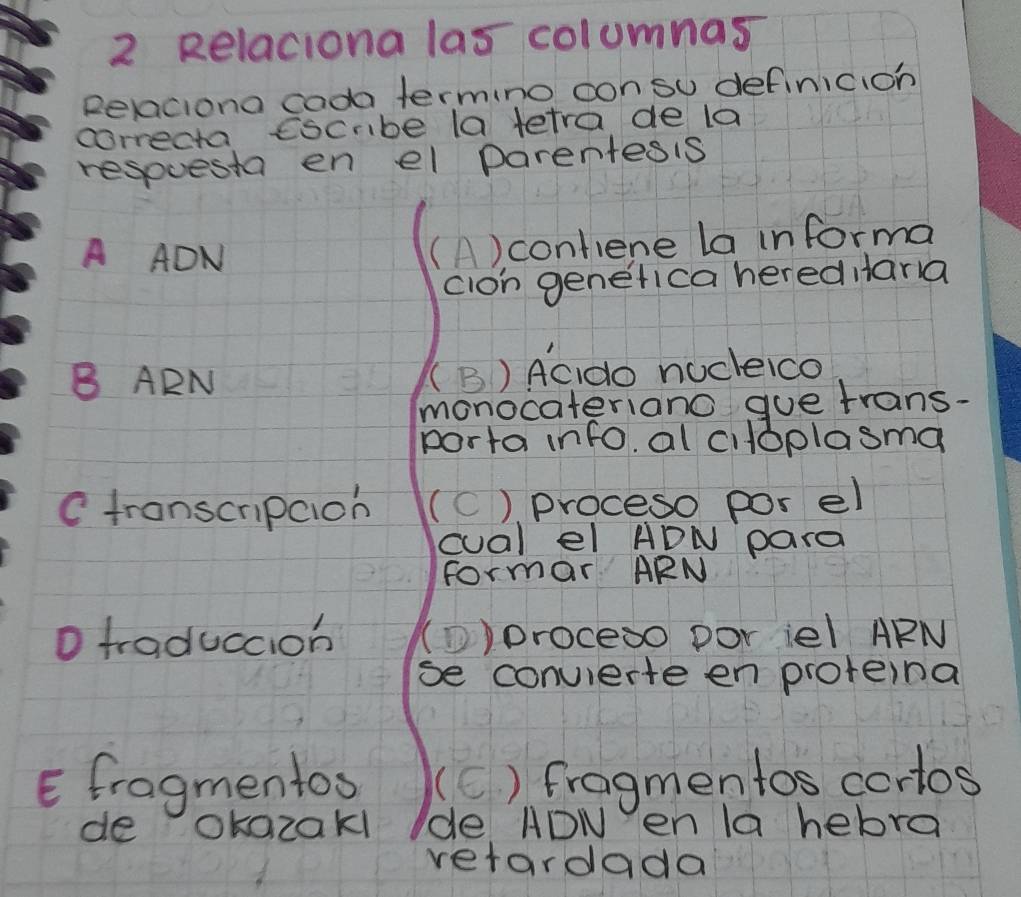 2 Relaciona las columnas
Relaciona cada termino con su definición
correcta Escribe la letra de la
respuesta en el parentesis
A ADN
(A) contiene la informa
ción genética hereditaria
B ARN
(B) Ácido nucleico
monocateriano que trans-
porta info. al citoplasma
C transcripción
(C) proceso por el
cual el ADN para
formar ARN
D traducción
(D) proceso por el ARN
se convierte en proteina
E fragmentos
de okazaki
(E) fragmentos cortos
de ADN en la hebra
retardada